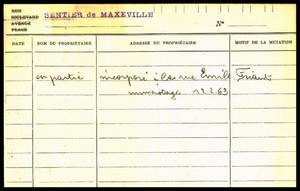 RUE
BOULEVARD SENTIER de MAXEVILLE
AVENUE
PLACE
N°
DATE NOM DU PROPRIÉTAIRE ADRESSE DU PROPRIÉTAIRE MOTIF DE LA MUTATION
en partie incorporé à la rue Emile Friant
numérotage 18.2.63